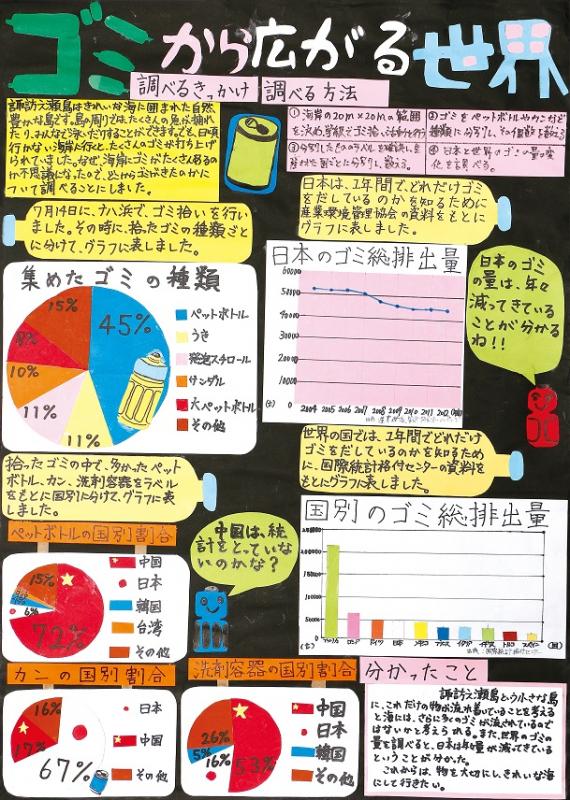 ゴミから広がる世界
調べるきっかけ
諏訪之瀬島はきれいな海に囲まれた自然
豊かな島です。島の周りでは、たくさんの魚が捕れ
行かない海岸へ行くと、たくさんのゴミが打ち上げ
られていました。なぜ、海岸にゴミがたくさんあるの
か不思議になったので、どこから流れてきたのかに
ついて調べることにしました。
調べる方法
①海岸の20m×20mの範囲
②ゴミをペットボトルやカンなど
種類に分別し、その個数を数える
④日本と世界のゴミの量の変
化を調べる。
7月14日に、ナハ浜で、ゴミ拾いを行い
ました。その時に、拾ったゴミの種類ごと
に分けて、グラフに表しました。
集めたゴミの種類
45%
11%
11%
10%
8%
15%
ペットボトル
うき
発泡スチロール
サンダル
大ペットボトル
その他
日本は、1年間で、どれだけゴミ
をだしているのかを知るために
産業環境管理協会の資料をもとに
グラフに表しました。
日本のゴミ総排出量
60000
50000
40000
30000
20000
10000
0
(t)
2004 2005 2006 2007 2008 2009 2010 2011 2012(年)
日本のゴミ
の量は、年々
減ってきている
ことが分かる
ね!!
拾ったゴミの中で、多かったペット
ボトル、カン、洗剤容器をラベル
をもとに国別に分けて、グラフに表
しました。
ペットボトルの国別割合
72%
6%
15%
中国
日本
韓国
台湾
その他
中国は、統
計をとっていな
いのかな?
世界の国では、1年間でどれだけ
ゴミをだしているのかを知るため
に、国際統計格付センターの資料を
もとにグラフに表しました。
国別のゴミ総排出量
カンの国別割合
67%
17%
16%
日本
中国
その他
洗剤容器の国別割合
53%
16%
5%
26%
中国
日本
韓国
その他
分かったこと
諏訪之瀬島という小さな島
に、これだけの物が流れ着いていることを考える
と海には、さらに多くのゴミが流されているので
はないかと考えられる。また、世界のゴミの
量を調べると、日本は年々量が減ってきている
ということが分かった。
これからは、物を大切にし、きれいな海
にして行きたい。